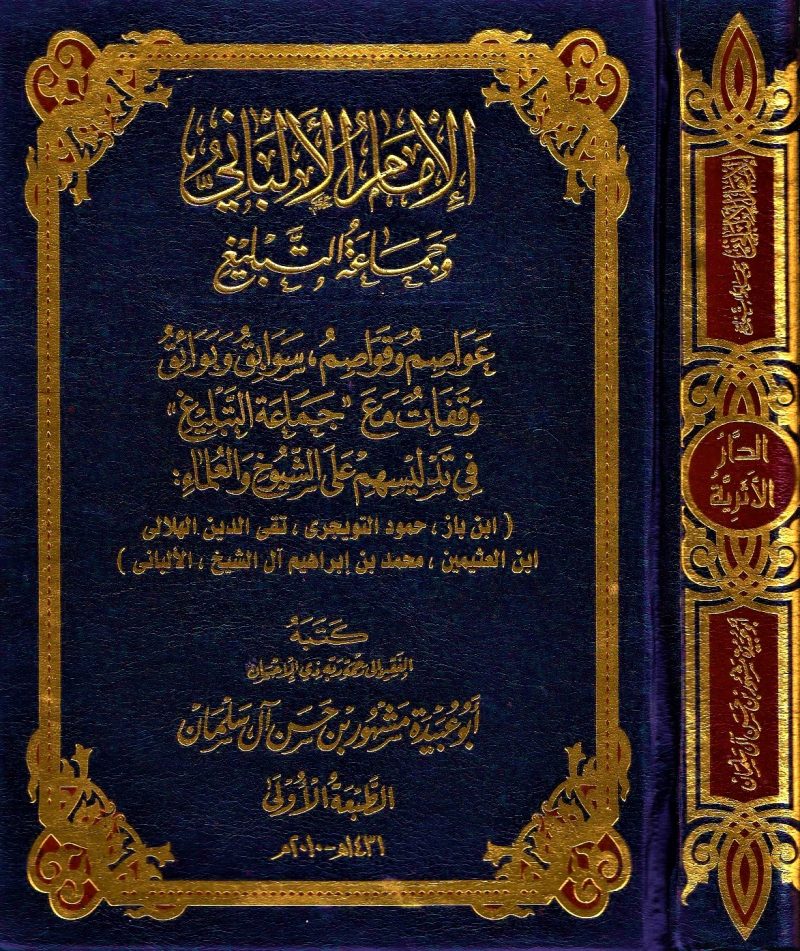 الإِمَامُ الأَلْبَانِيُّ
وَجَمَاعَةُ التَّبْلِيْغِ
عَوَاصِمُ وَقَوَاصِمُ، سَوَابِقُ وَبَوَائِقُ
وَقَفَاتٌ مَعَ "جَمَاعَةِ التَّبْلِيْغِ"
فِي تَدْلِيْسِهِمْ عَلَى الشُّيُوخِ وَالعُلَمَاءِ:
( ابن باز ، حمود التويجرى ، تقى الدين الهلالى
ابن العثيمين ، محمد بن إبراهيم آل الشيخ ، الألبانى )
كَتَبَهُ
الفقير إلى عفو ربه ذي الإحسان
أَبُو عُبَيْدَةَ مَشْهُورُ بْنُ حَسَن آل سَلْمَان
الطَّبْعَةُ الأُوْلَى
١٤٣١هـ-٢٠١٠م
الإمام الألباني وجماعة التبليغ
الدَّارُ
الأَثَرِيَّةُ
أبو عبيدة مشهور بن حسن آل سلمان